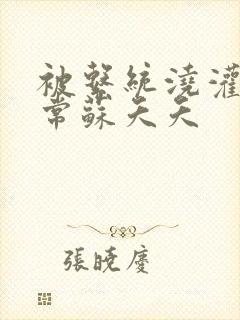 被繫統澆灌
常蘇天天
張曉慶